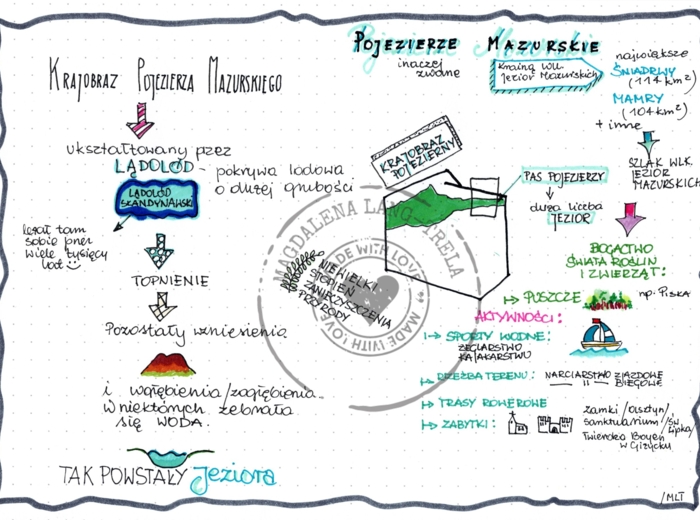 Krajobraz Pojezierza Mazurskiego
ukształtowany przez
LĄDOLÓD - pokrywa lodowa
o dużej grubości
LĄDOLÓD
SKANDYNAWSKI
leżał tam
sobie przez
wiele tysięcy
lat
TOPNIENIE
Pozostały wzniesienia
i wgłębienia/zagłębienia.
W niektórych zebrała
się WODA.
TAK POWSTAŁY jeziora
Pojezierze Mazurskie
inaczej
zwane
Krainą Wlk.
Jezior Mazurskich
największe
ŚNIARDWY
(114 km²)
MAMRY
(104 km²)
+ inne
SZLAK WLK.
JEZIOR
MAZURSKICH
KRAJOBRAZ
POJEZIERNY
PAS POJEZIERZY
duża liczba
JEZIOR
NIEWIELKI
STOPIEŃ
ZANIECZYSZCZENIA
PRZYRODY
BOGACTWO
ŚWIATA ROŚLIN
I ZWIERZĄT:
PUSZCZE
np. Piska
AKTYWNOŚCI:
SPORTY WODNE:
ŻEGLARSTWO
KAJAKARSTWO
RZEŹBA TERENU: NARCIARSTWO ZJAZDOWE
—"— BIEGOWE
TRASY ROWEROWE
ZABYTKI:
zamki/Olsztyn/
sanktuarium/Św.
Lipka/
Twierdza Boyen
w Giżycku
/MLT
MADE WITH LOVE
MADE WITH LOVE